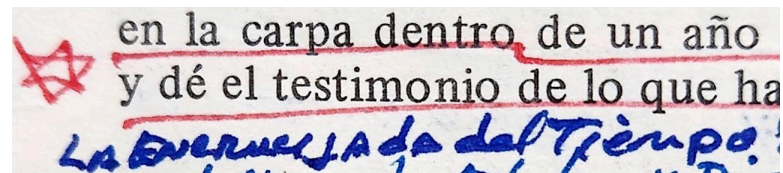 en la carpa dentro de un año
y dé el testimonio de lo que ha
LA Encrucijada del Tiempo.